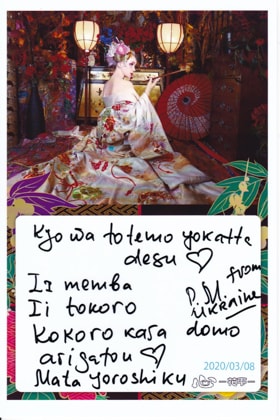 Kyo wa totemo yokatta
desu ♡
Ii memba
Ii tokoro
Kokoro kara domo
arigatou ♡
Mata yoroshiku
D.M from
Ukraine
2020/03/08
心-花夢-